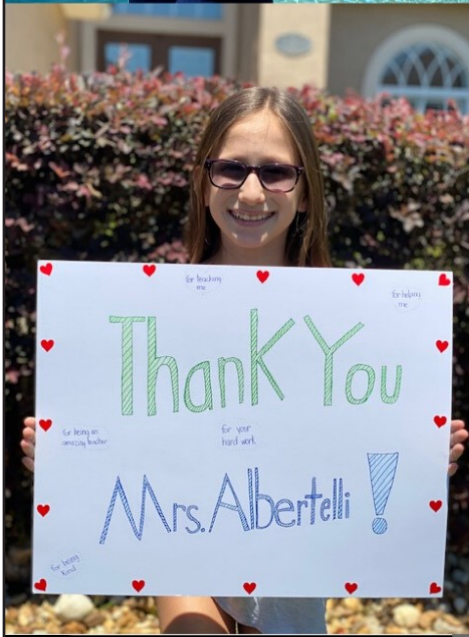 for teaching
me
for helping
me
Thank You
for being an
amazing teacher
for your
hard work
Mrs. Albertelli !
for being
kind